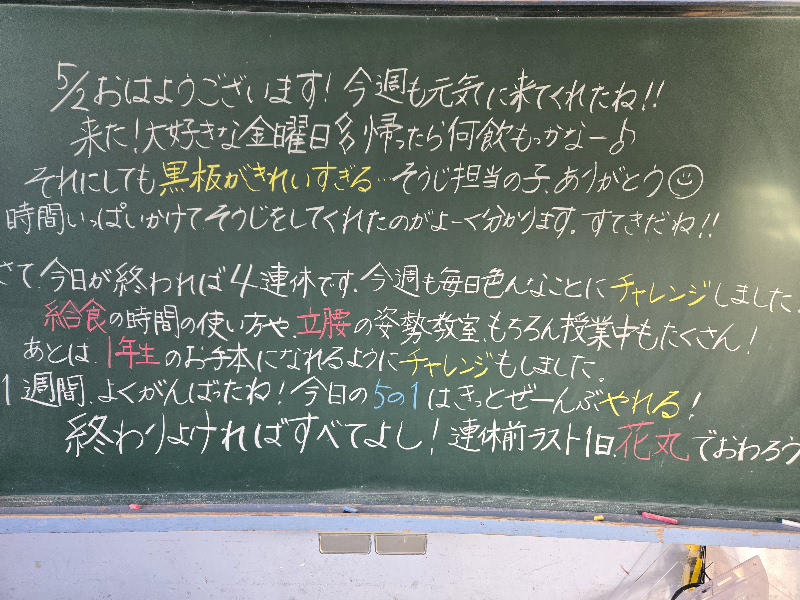 5/2 おはようございます! 今週も元気に来てくれたね!!
来た!大好きな金曜日 帰ったら何飲もっかなー♪
それにしても黒板がきれいすぎる…そうじ担当の子、ありがとう☺
時間いっぱいかけてそうじをしてくれたのがよーく分かります。すてきだね!!
さて、今日が終われば4連休です。今週も毎日色んなことにチャレンジしました。
給食の時間の使い方や、立腰の姿勢教室、もちろん授業中もたくさん!
あとは、1年生のお手本になれるようにチャレンジもしました。
1週間、よくがんばったね!今日の5の1はきっとぜーんぶやれる!
終わりよければすべてよし!連休前ラスト1日、花丸でおわろう